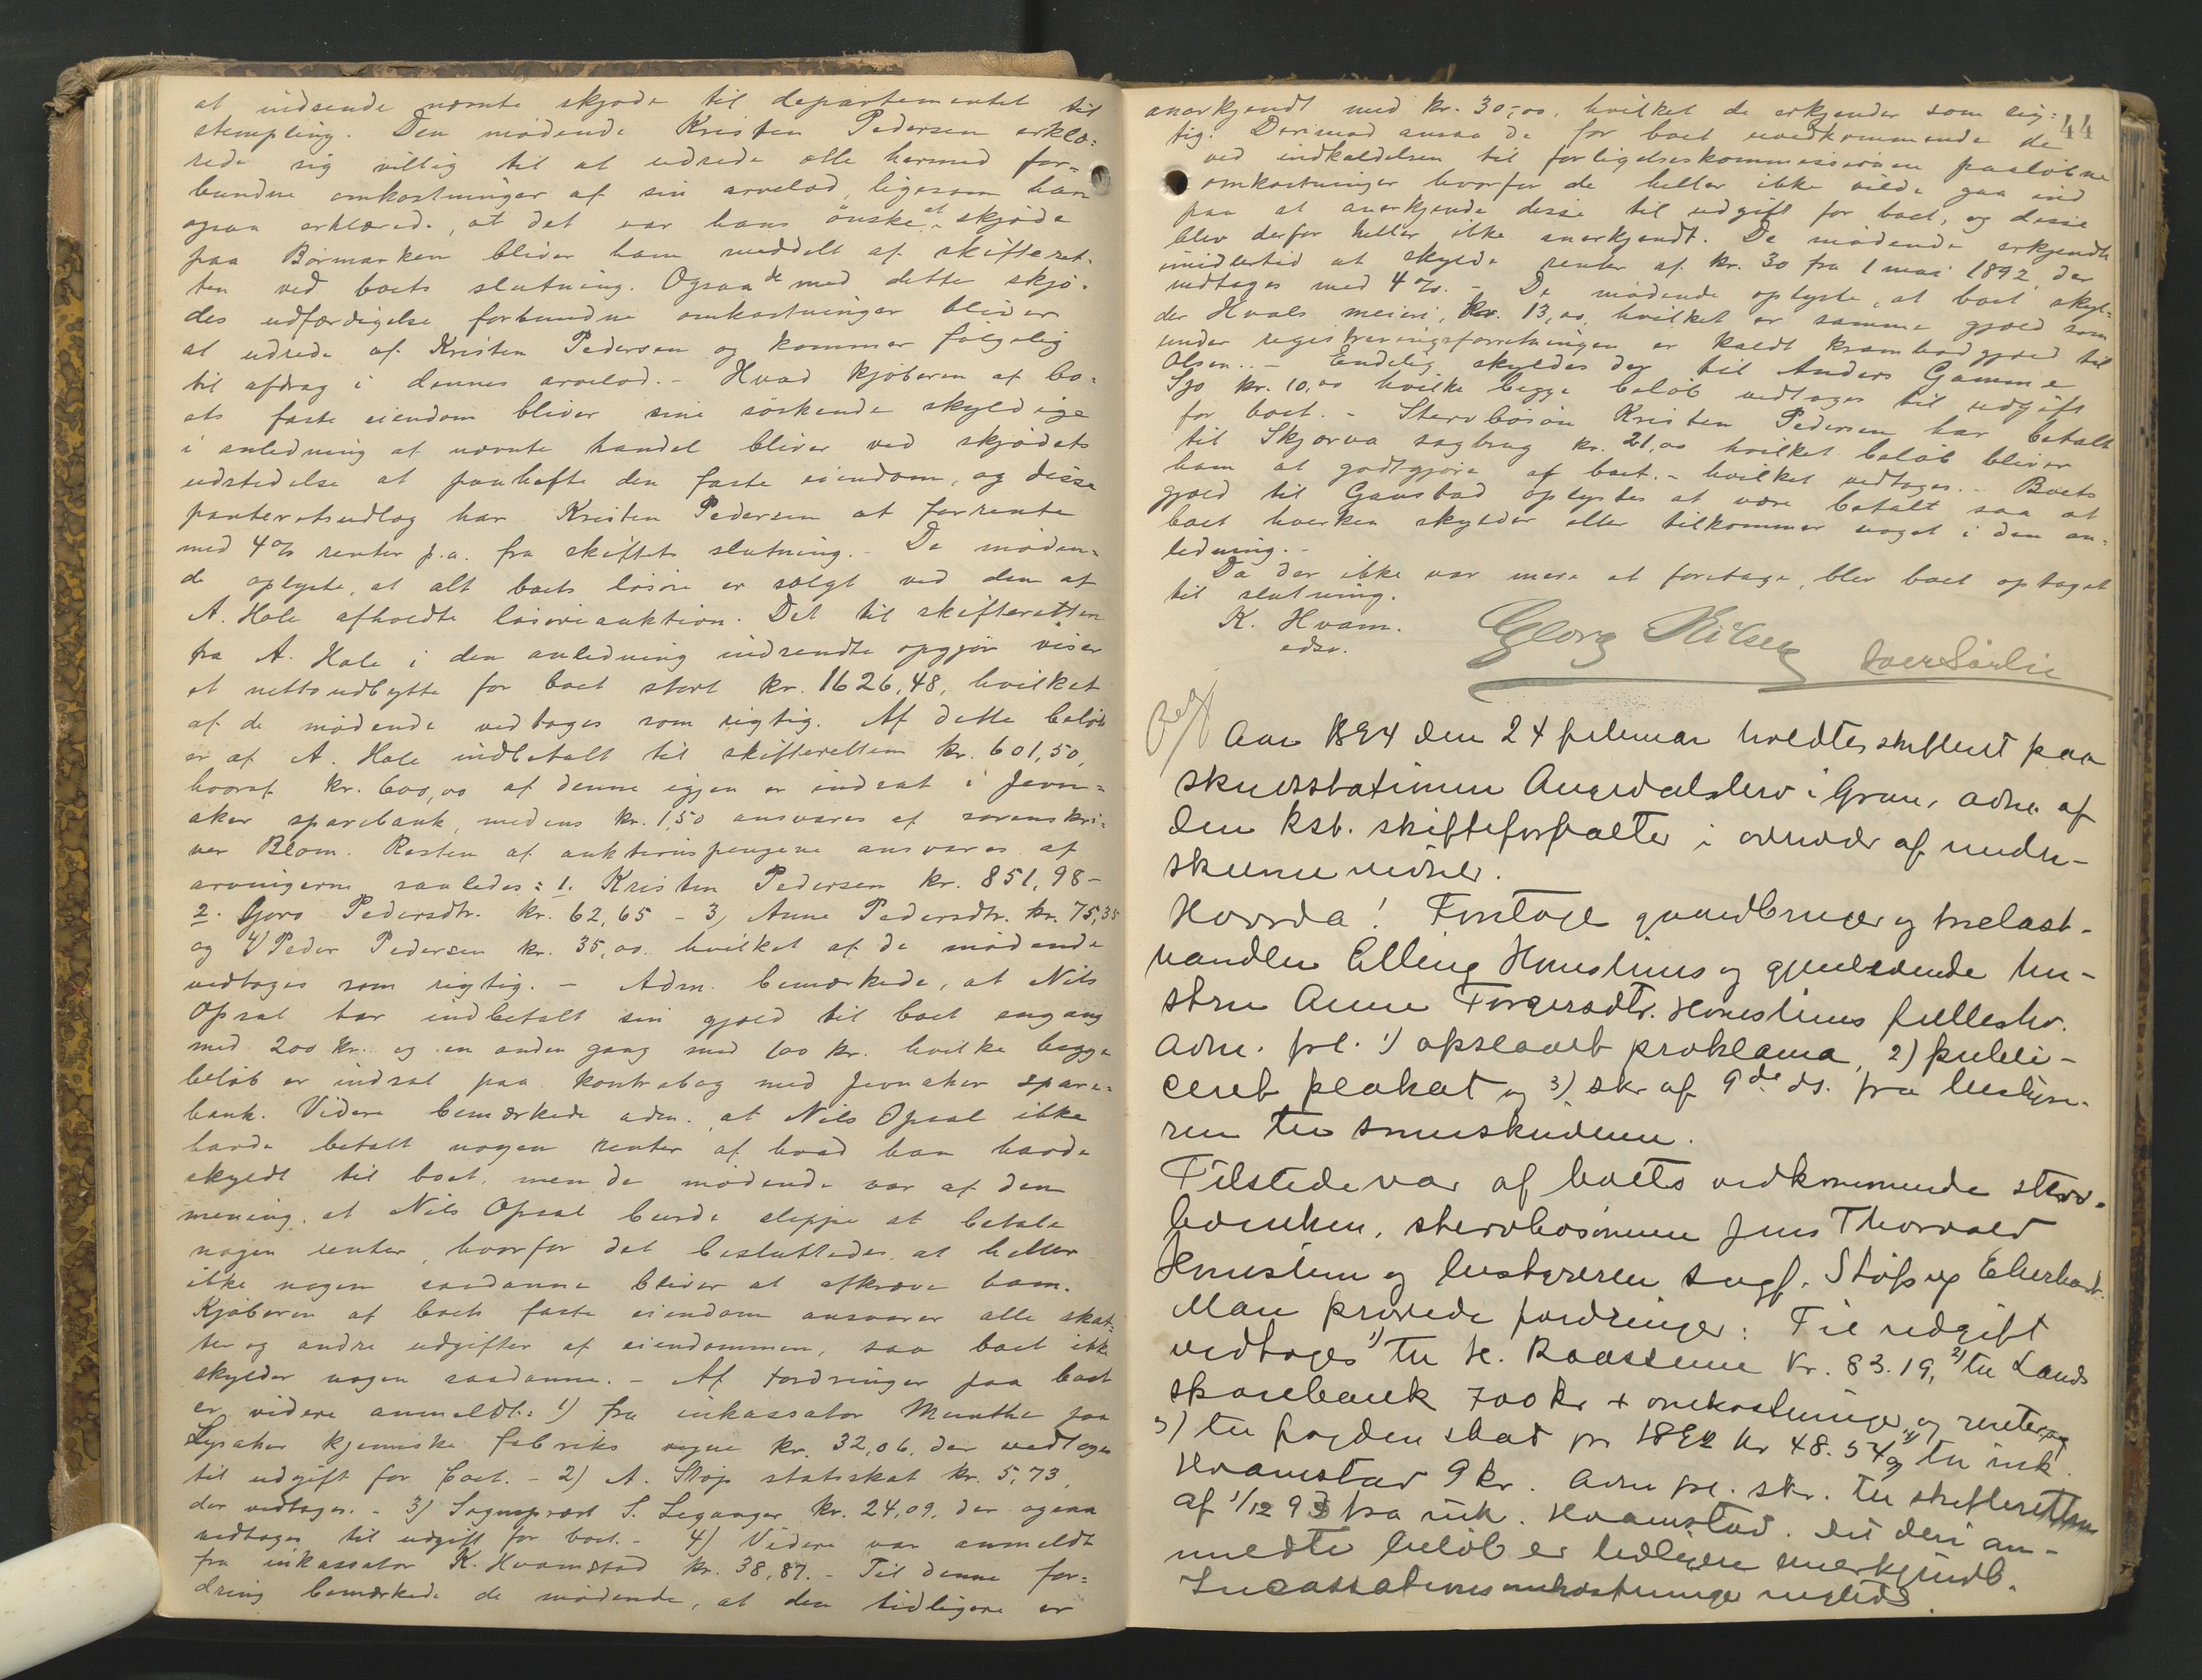 at indsende nævnte skjøde til departementet til
stempling. Den mødende Kristen Pedersen erklæ-
rede sig villig til at udrede alle hermed for-
bundne omkostninger af sin arvelod, ligesom han
ogsaa erklærede, at det var hans ønske, at skjøde
paa Börmarken bliver ham meddelt af skifteret-
ten ved boets slutning. Ogsaa de med dette skjö-
des udfærdigelse forbundne omkostninger bliver
at udrede af Kristen Pedersen og kommer følgelig
til afdrag i dennes arvelod. - Hvad kjøberen af bo-
ets faste eiendom bliver sine söskende skyldige
i anledning af nævnte handel bliver ved skjødets
udstedelse at panhefte den faste eiendom, og disse
panteretsudlæg har Kristen Pedersen at forrente
med 4% renter p.a. fra skiftets slutning. - De möden-
de oplyste, at alt boets lösöre er solgt ved den af
A. Hole afholdte lösöreauktion. Det til skifteretten
fra A. Hole i den anledning indsendte opgjör viser
et nettoudbytte for boet stort kr. 1626,48, hvilket
af de mødende vedtages som rigtig. Af dette belöb
er af A. Hole indbetalt til skifteretten kr. 601,50,
hvoraf kr. 600,00 af denne igjen er indsat i Jevn-
aker sparebank, medens kr. 1,50 ansvares af sorenskri-
ver Blom. Resten af auktionspengene ansvares af
arvingerne saaledes: 1. Kristen Pedersen kr. 851,98 -
2. Goro Pedersdtr. kr. 62,65 - 3, Anne Pedersdtr. kr. 75,35
og 4) Peder Pedersen kr. 35,00. hvilket af de mødende
vedtages som rigtig. - Adm. bemærkede, at Nils
Opsal har indbetalt sin gjæld til boet engang
med 200 kr. og en anden gang med 100 kr. hvilke begge
belöb er indsat paa kontrabog med Jevnaker spare-
bank. Videre bemærkede adm. at Nils Opsal ikke
havde betalt nogen renter af hvad han havde
skyldt til boet, men de mødende var af den
mening, at Nils Opsal burde slippe at betale
nogen renter, hvorfor det besluttedes at heller
ikke nogen saadanne bliver at afkræve ham.
Kjøberen af boets faste eiendom ansvarer alle skat-
ter og andre udgifter af eiendommen, saa boet ikke
skylder nogen saadanne. - Af fordringer paa boet
er videre anmeldt: 1) fra inkassator Munthe paa
Lysaker kjemiske fabriks vegne kr. 32,06. der vedtages
til udgift for boet. - 2) A. Stöp statsskat kr. 5,73,
der vedtages. - 3) Sogneprest S. Leganger kr. 24,09, der ogsaa
vedtages til udgift for boet. - 4) Videre var anmeldt
fra inkassator K. Hvamstad kr. 38,87. - Til denne for-
dring bemærkede de mødende, at den tidligere er
44
anerkjendt med kr. 30,00, hvilket de erkjender som rig-
tig. Derimod ansaa de for boet uvedkommende de
ved indkaldelsen til forligelseskommissionen paaløbne
omkostninger hvorfor de heller ikke vilde gaa ind
paa at anerkjende disse til udgift for boet, og disse
blev derfor heller ikke anerkjendt. De mødende erkjendte
imidlertid at skylde renter af kr. 30 fra 1 mai 1892, der
vedtages med 4%. - De mødende oplyste, at boet skyl-
der Hvals meieri, kr. 13,00, hvilket er samme gjæld som
under registreringsforretningen er kaldt krambodgjæld til
Olsen. - Endelig skyldes der til Anders Gamme
kr. 10,00 hvilke begge belöb vedtages til udgift
for boet. - Stervbosön Kristen Pedersen har betalt
til Skjærva sagbrug kr. 21,00 hvilket belöb bliver
ham at godtgjøre af boet. - hvilket vedtages. - Boets
gjæld til Gausbad oplystes at være betalt saa at
boet hverken skylder eller tilkommer noget i den an-
ledning. -
Da der ikke var mere at foretage, blev boet optaget
til slutning.
K. Hvam.
edsv.
Beg
Aar 1894 den 24 februar holdtes skifteret paa
skydsstationen Augedalsbro i Gran, adm. af
den kst. skifteforvalter i overvær af under-
skrevne vidner.
Hvorda! Foretoges gaardbruger og trælast-
handler Elling Horslins og gjenlevende hu-
stru Anne Torgersdtr. Horslins fællesbo.
Adm. frl. 1) opslaaet proklama, 2) publi-
ceret plakat og 3) skr. af 9de ds. fra bestyre-
ren til sorenskriveren.
Tilstede var af boets vedkommende sterv-
boenken, stervbosönnen Jens Thorvald
Horslin og bestyreren sagf. Eberhard.
Man prøvede fordringer: Til udgift
vedtoges 1) til H. Raassum kr. 83.19, 2) til Lands
sparebank 700 kr + omkostninger og renter, og
3) til fogden skat for 1892 kr 48.54 og 4) til ink.
Hvamstad 9 kr. Adm frl. skr. til skifteretten
af 1/12 93 fra ink. Hvamstad. Det deri an-
meldte belöb er tidligere anerkjendt.
Incassationsomkostninger negtedes.